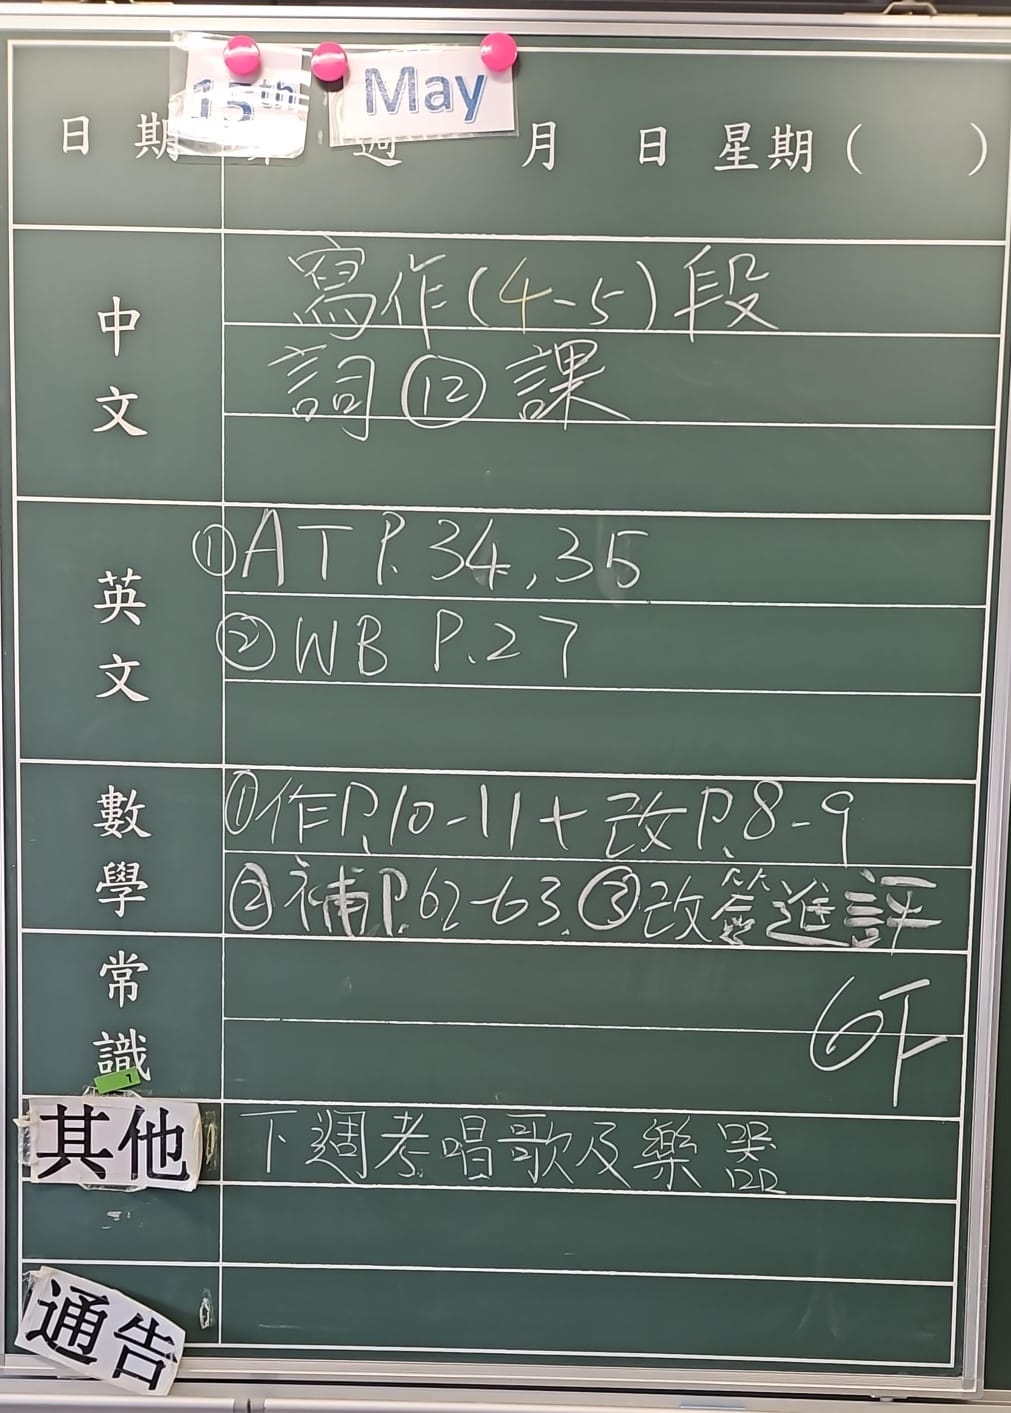 15th May
日期 週 月 日 星期( )
中文
寫作(4-5)段
詞⑫課
英文
①AT P.34,35
②WB P.27
數學
①作P.10-11+改P.8-9
②補P.62-63.③改簽進評
常識
6下
1
其他
下週考唱歌及樂器
通告